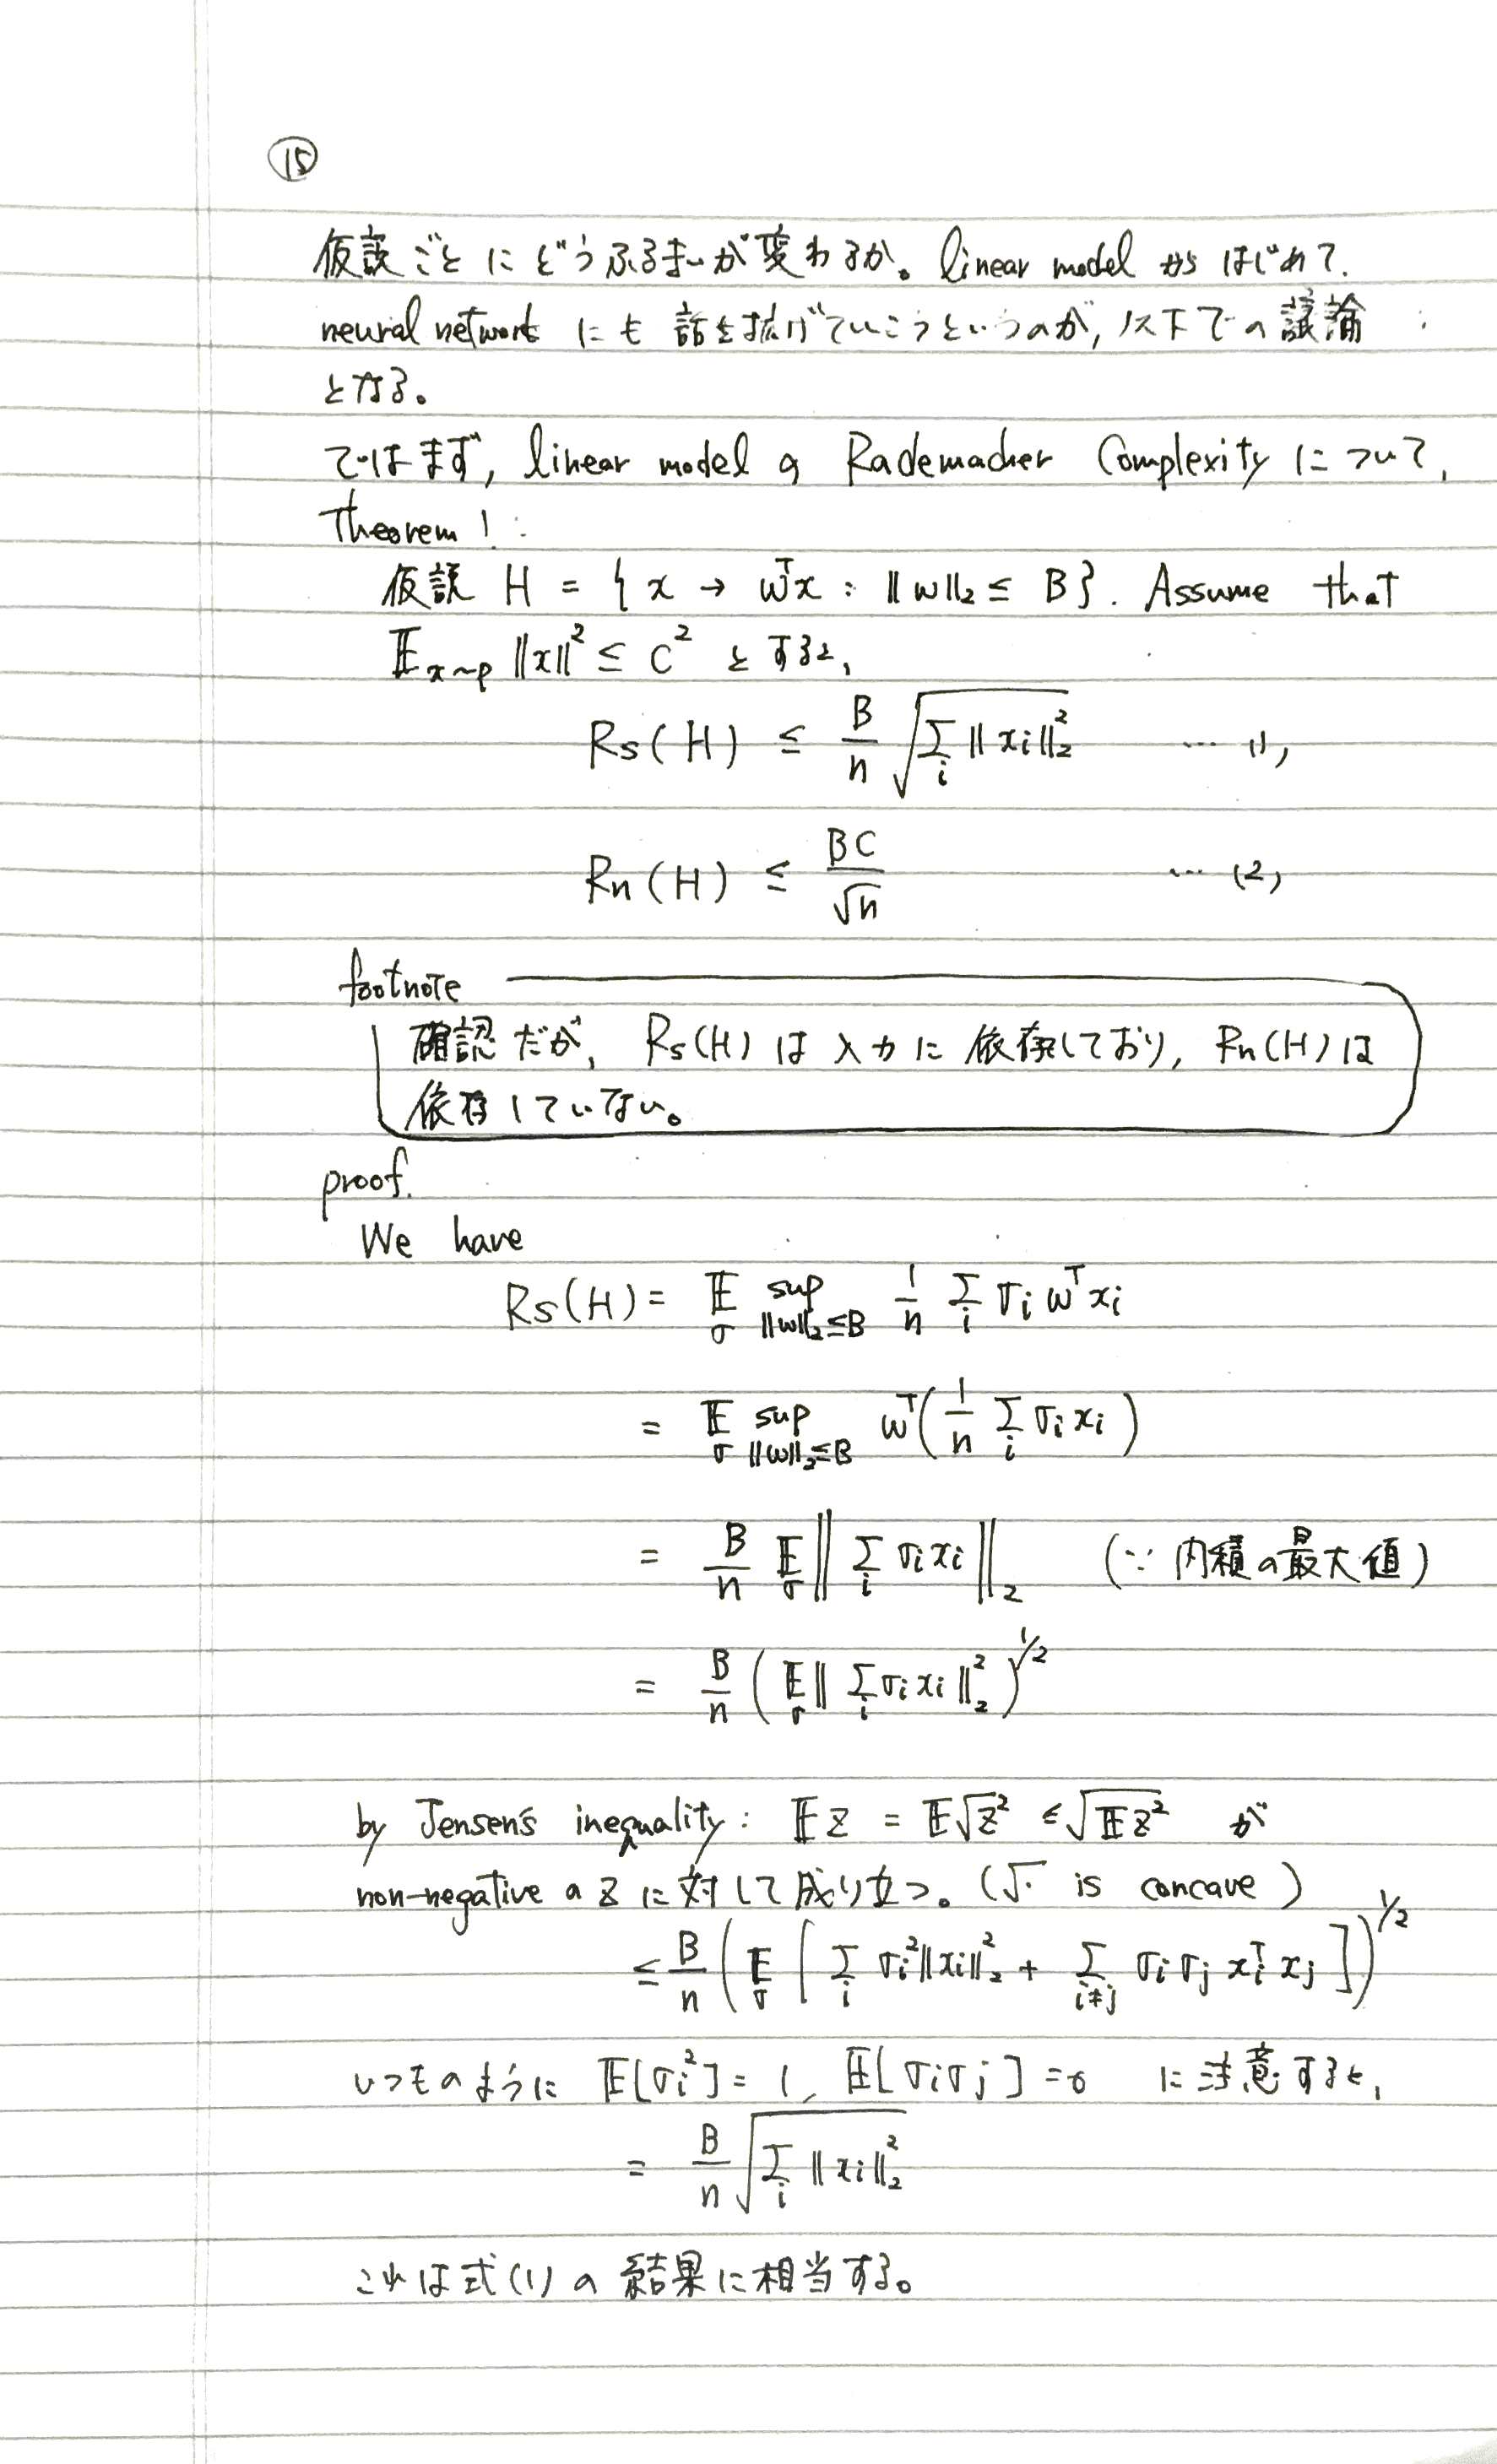 ⑮
仮説ごとにどうふるまいが変わるか。linear model からはじめて、
neural network にも 話を拡げていこうというのが, 以下での議論
となる。
ではまず, linear model の Rademacher Complexity について,
Theorem 1:
仮説 H = { x → w^T x : ‖w‖₂ ≤ B }. Assume that
𝔼_{x~p} ‖x‖² ≤ C² とすると,
R_S(H) ≤ B/n √(Σ_i ‖x_i‖₂²) … (1)
R_n(H) ≤ BC/√n … (2)
footnote
確認だが, R_S(H) は 入力に 依存しており, R_n(H) は
依存していない。
proof.
We have
R_S(H) = 𝔼_σ sup_{‖w‖₂≤B} 1/n Σ_i σ_i w^T x_i
= 𝔼_σ sup_{‖w‖₂≤B} w^T (1/n Σ_i σ_i x_i)
= B/n 𝔼_σ ‖Σ_i σ_i x_i‖₂ (∵ 内積の最大値)
= B/n (𝔼_σ ‖Σ_i σ_i x_i‖₂²)^{1/2}
by Jensen's inequality: 𝔼 z = 𝔼√z² ≤ √(𝔼 z²) が
non-negative の z に対して成り立つ。(√· is concave)
≤ B/n (𝔼_σ [Σ_i σ_i² ‖x_i‖₂² + Σ_{i≠j} σ_i σ_j x_i^T x_j])^{1/2}
いつものように 𝔼[σ_i²] = 1, 𝔼[σ_i σ_j] = 0 に注意すると,
= B/n √(Σ_i ‖x_i‖₂²)
これは式(1)の 結果に相当する。